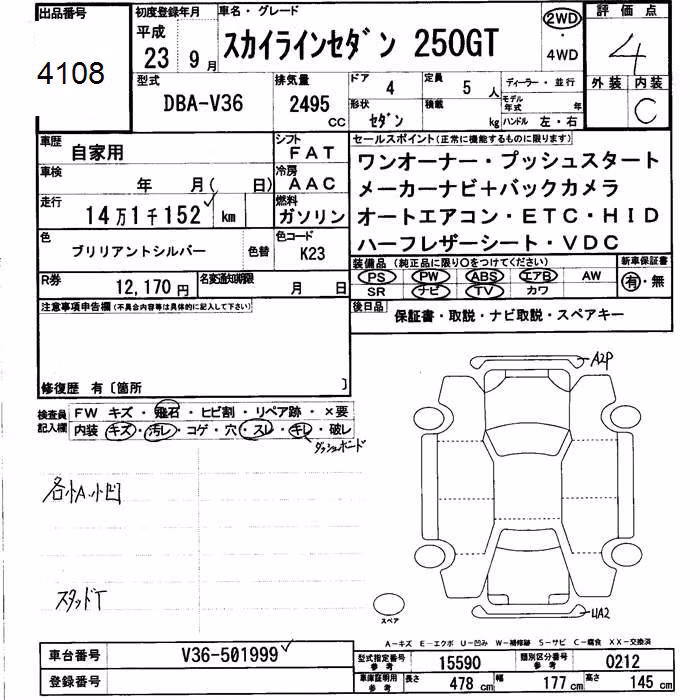 出品番号
4108
初度登録年月
平成
23 9月
車名・グレード
スカイラインセダン 250GT
2WD
・
4WD
評価点
4
外装 内装
C
型式
DBA-V36
排気量
2495
CC
ドア
4
定員
5人
ディーラー・並行
形状
セダン
積載
kg
モデル年式
年
ハンドル 左・右
車歴
自家用
シフト
FAT
車検
年 月( 日)
冷房
AAC
走行
14万1千152 km
燃料
ガソリン
色
ブリリアントシルバー
色替
色コード
K23
R券
12,170円
名変通知期限
月 日
セールスポイント(正常に機能するものに限ります)
ワンオーナー・プッシュスタート
メーカーナビ+バックカメラ
オートエアコン・ETC・HID
ハーフレザーシート・VDC
装備品(純正品に限り○をつけてください)
PS PW ABS エアB AW
SR ナビ TV カワ
新車保証書
有・無
後日品
保証書・取説・ナビ取説・スペアキー
注意事項申告欄(不具合内容等は具体的に記入して下さい)
修復歴 有〔箇所 〕
検査員記入欄
FW キズ・飛石・ヒビ割・リペア跡・×要
内装 キズ・汚レ・コゲ・穴・スレ・キレ・破レ
ダッシュボード
各小A.小凹
スタッドT
A2P
UA2
スペア
A-キズ E-エクボ U-凹み W-補修跡 S-サビ C-腐食 XX-交換済
車台番号
V36-501999
登録番号
型式指定番号
参考
15590
類別区分番号
参考
0212
車庫証明用
参考
長さ
478 cm
幅
177 cm
高さ
145 cm